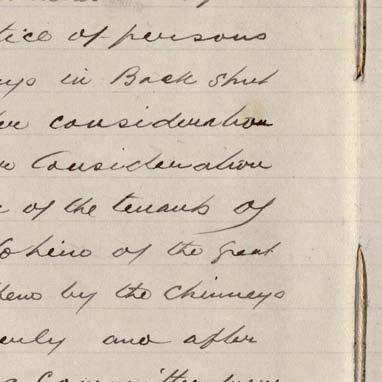 tice of persons
in Back Street
consideration
Consideration
of the tenants of
of the great
by the Chimneys
and after
a Committee